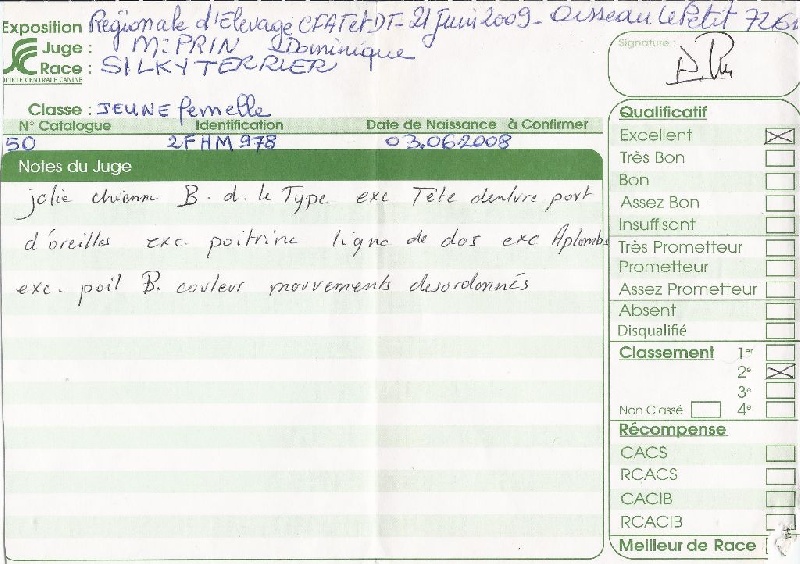 Exposition Régionale d'Elevage CFATetDT - 21 Juin 2009 - Oisseau Le Petit
Juge : M. PRIN Dominique
Race : SILKY TERRIER
SOCIÉTÉ CENTRALE CANINE
Classe : JEUNE femelle
N° Catalogue Identification Date de Naissance à Confirmer
50 2FHM978 03.06.2008
Notes du Juge
jolie chienne B. d. le Type exc Tête denture port
d'oreilles exc. poitrine ligne de dos exc Aplombs
exc. poil B. couleur mouvements desordonnés
Signature :
Qualificatif
Excellent
Très Bon
Bon
Assez Bon
Insuffisant
Très Prometteur
Prometteur
Assez Prometteur
Absent
Disqualifié
Classement 1er
2e
3e
Non Classé 4e
Récompense
CACS
RCACS
CACIB
RCACIB
Meilleur de Race